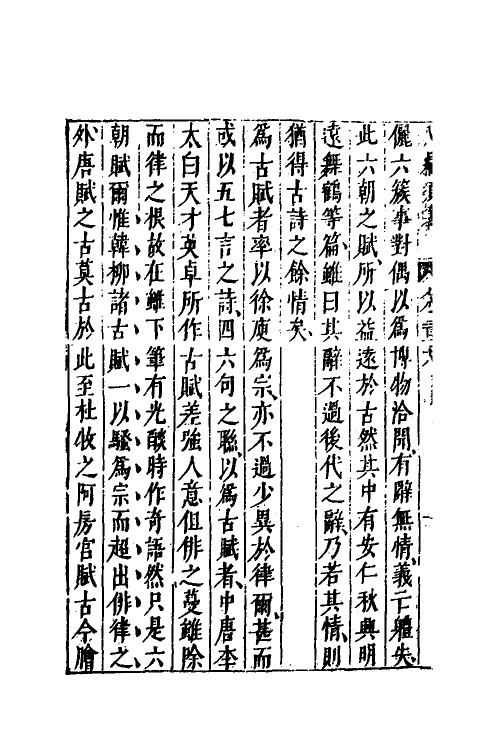 儷六簇事對偶以爲博物洽聞有辭無情義亡體失
此六朝之賦所以益遠於古然其中有安仁秋興明
遠舞鶴等篇雖曰其辭不過後代之辭乃若其情則
猶得古詩之餘情矣
爲古賦者率以徐庾爲宗亦不過少異於律爾甚而
或以五七言之詩四六句之聯以爲古賦者中唐李
太白天才英卓所作古賦差強人意但俳之蔓雖除
而律之根故在雖下筆有光燄時作奇語然只是六
朝賦爾惟韓柳諸古賦一以騷爲宗而超出俳律之
外唐賦之古莫古於此至杜牧之阿房宫賦古今膾